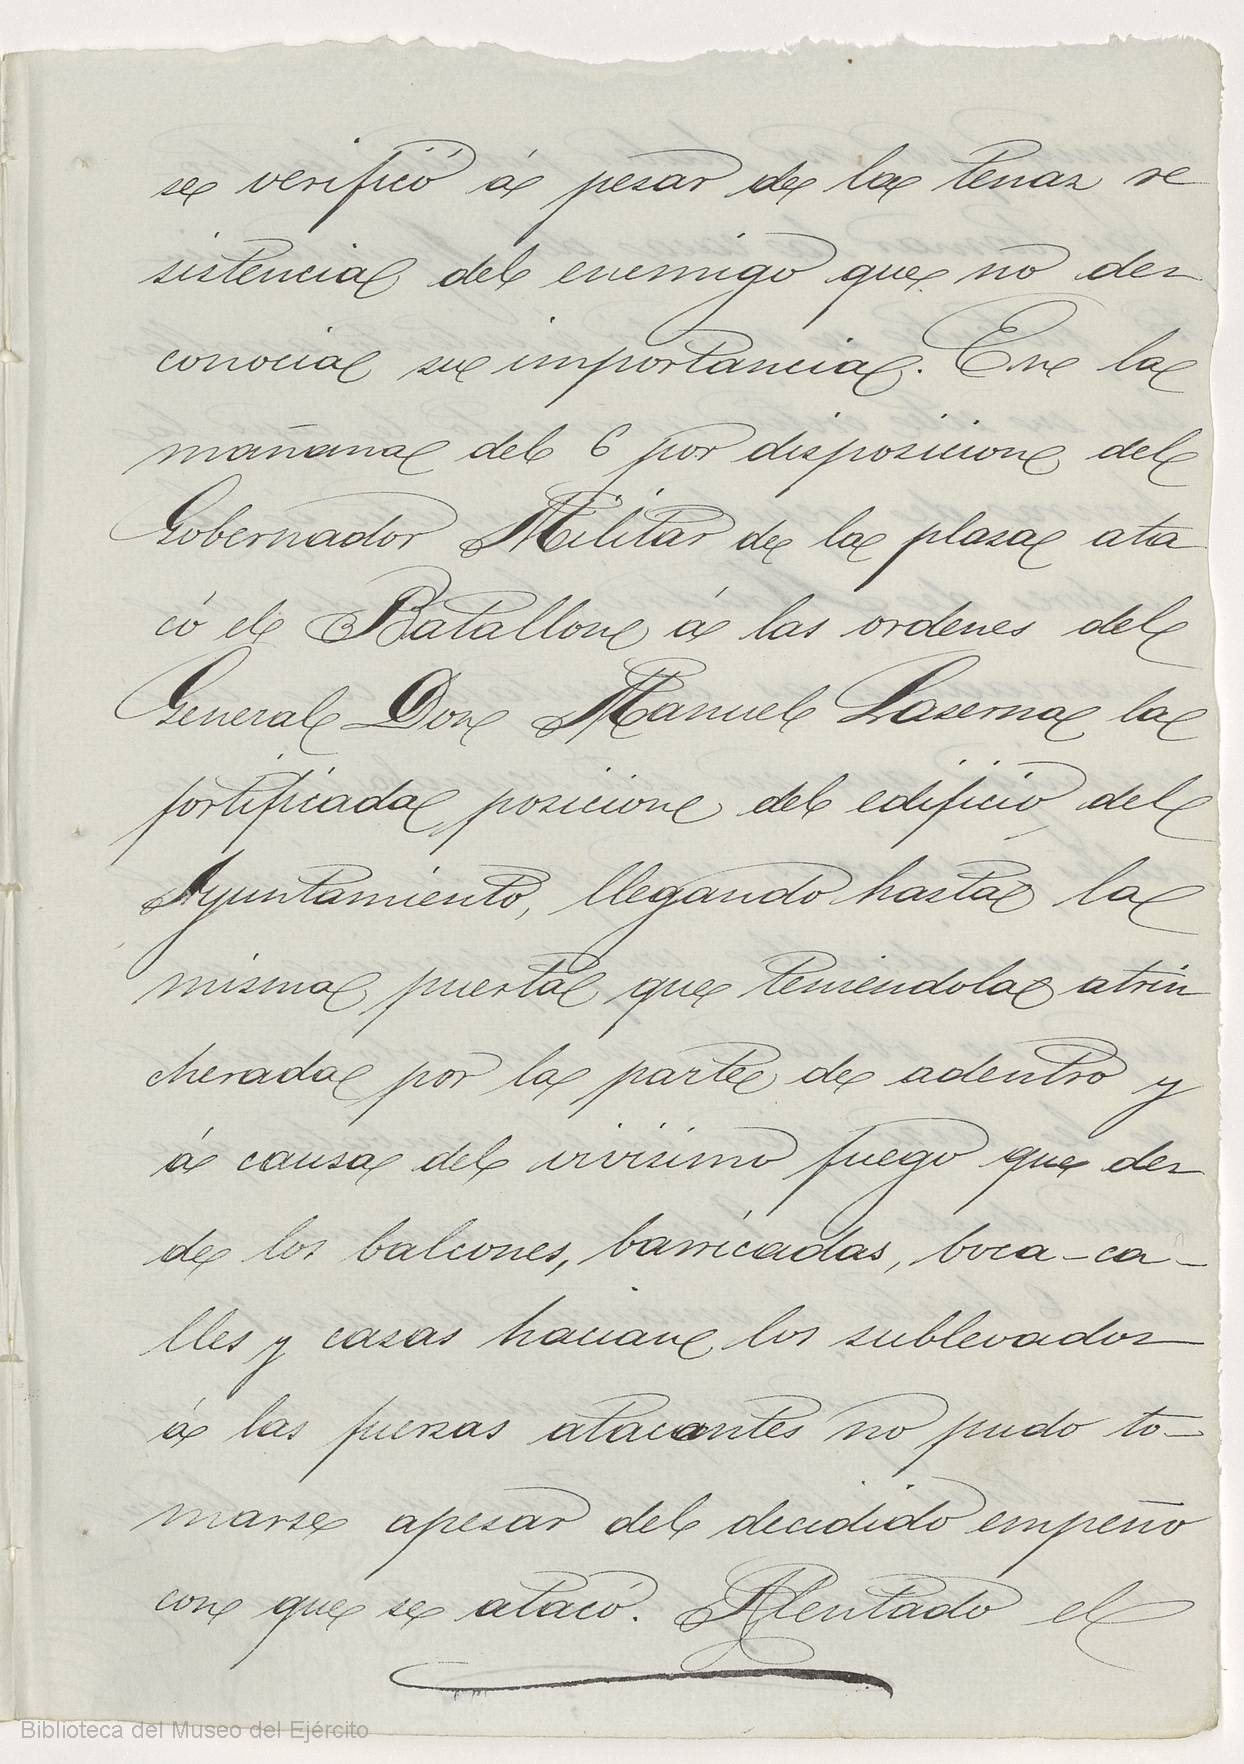 se verificó á pesar de la tenaz re
sistencia del enemigo que no des
conocia su importancia. En la
mañana del 6 por disposicion del
Gobernador Militar de la plaza ata
có el Batallon á las ordenes del
General Don Manuel Laserna la
fortificada posicion del edificio del
Ayuntamiento, llegando hasta la
misma puerta que teniéndola atrin
cherada por la parte de adentro y
á causa del vivisimo fuego que des
de los balcones, barricadas, boca-ca-
lles y casas hacian los sublevados
á las fuerzas atacantes no pudo to-
marse apesar del decidido empeño
con que se atacó. Alentado el
Biblioteca del Museo del Ejército